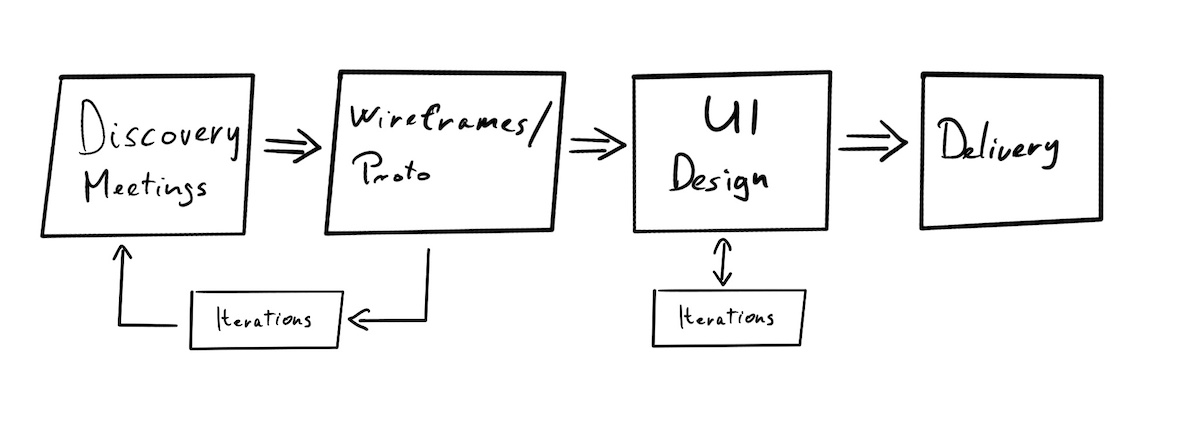 Discovery
Meetings
Wireframes/
Proto
UI
Design
Delivery
Iterations
Iterations